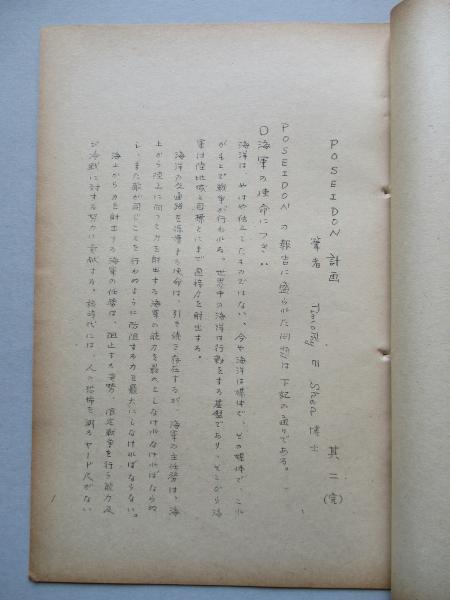 POSEIDON 計画 其二(完)
筆者 Timothy E Shea 博士
POSEIDON の報告に盛られた問題は下記の通りである。
海軍の使命につき:
海洋は、もはや独立したものではない。今や海洋は媒体で、その媒体で、これ
がもとで戦争が行われる。世界中の海洋は行動をする基盤であり、そこから海
軍は陸地域と目標とにまで直接力を射出する。
海洋の交通路を保護する使命は、引き続き存在するが、海軍の主任務は、海
上から陸上に向って力を射出する海軍の能力を最大としなければならぬ
し、また敵が同じことを行わぬように防阻する力を最大にしなければならない。
海上から力を射出する海軍の任務は、阻止する姿勢、限定戦争を行う能力及
び冷戦に対する努力に貢献する。核時代には、人の恐怖を測るヤード尺がない